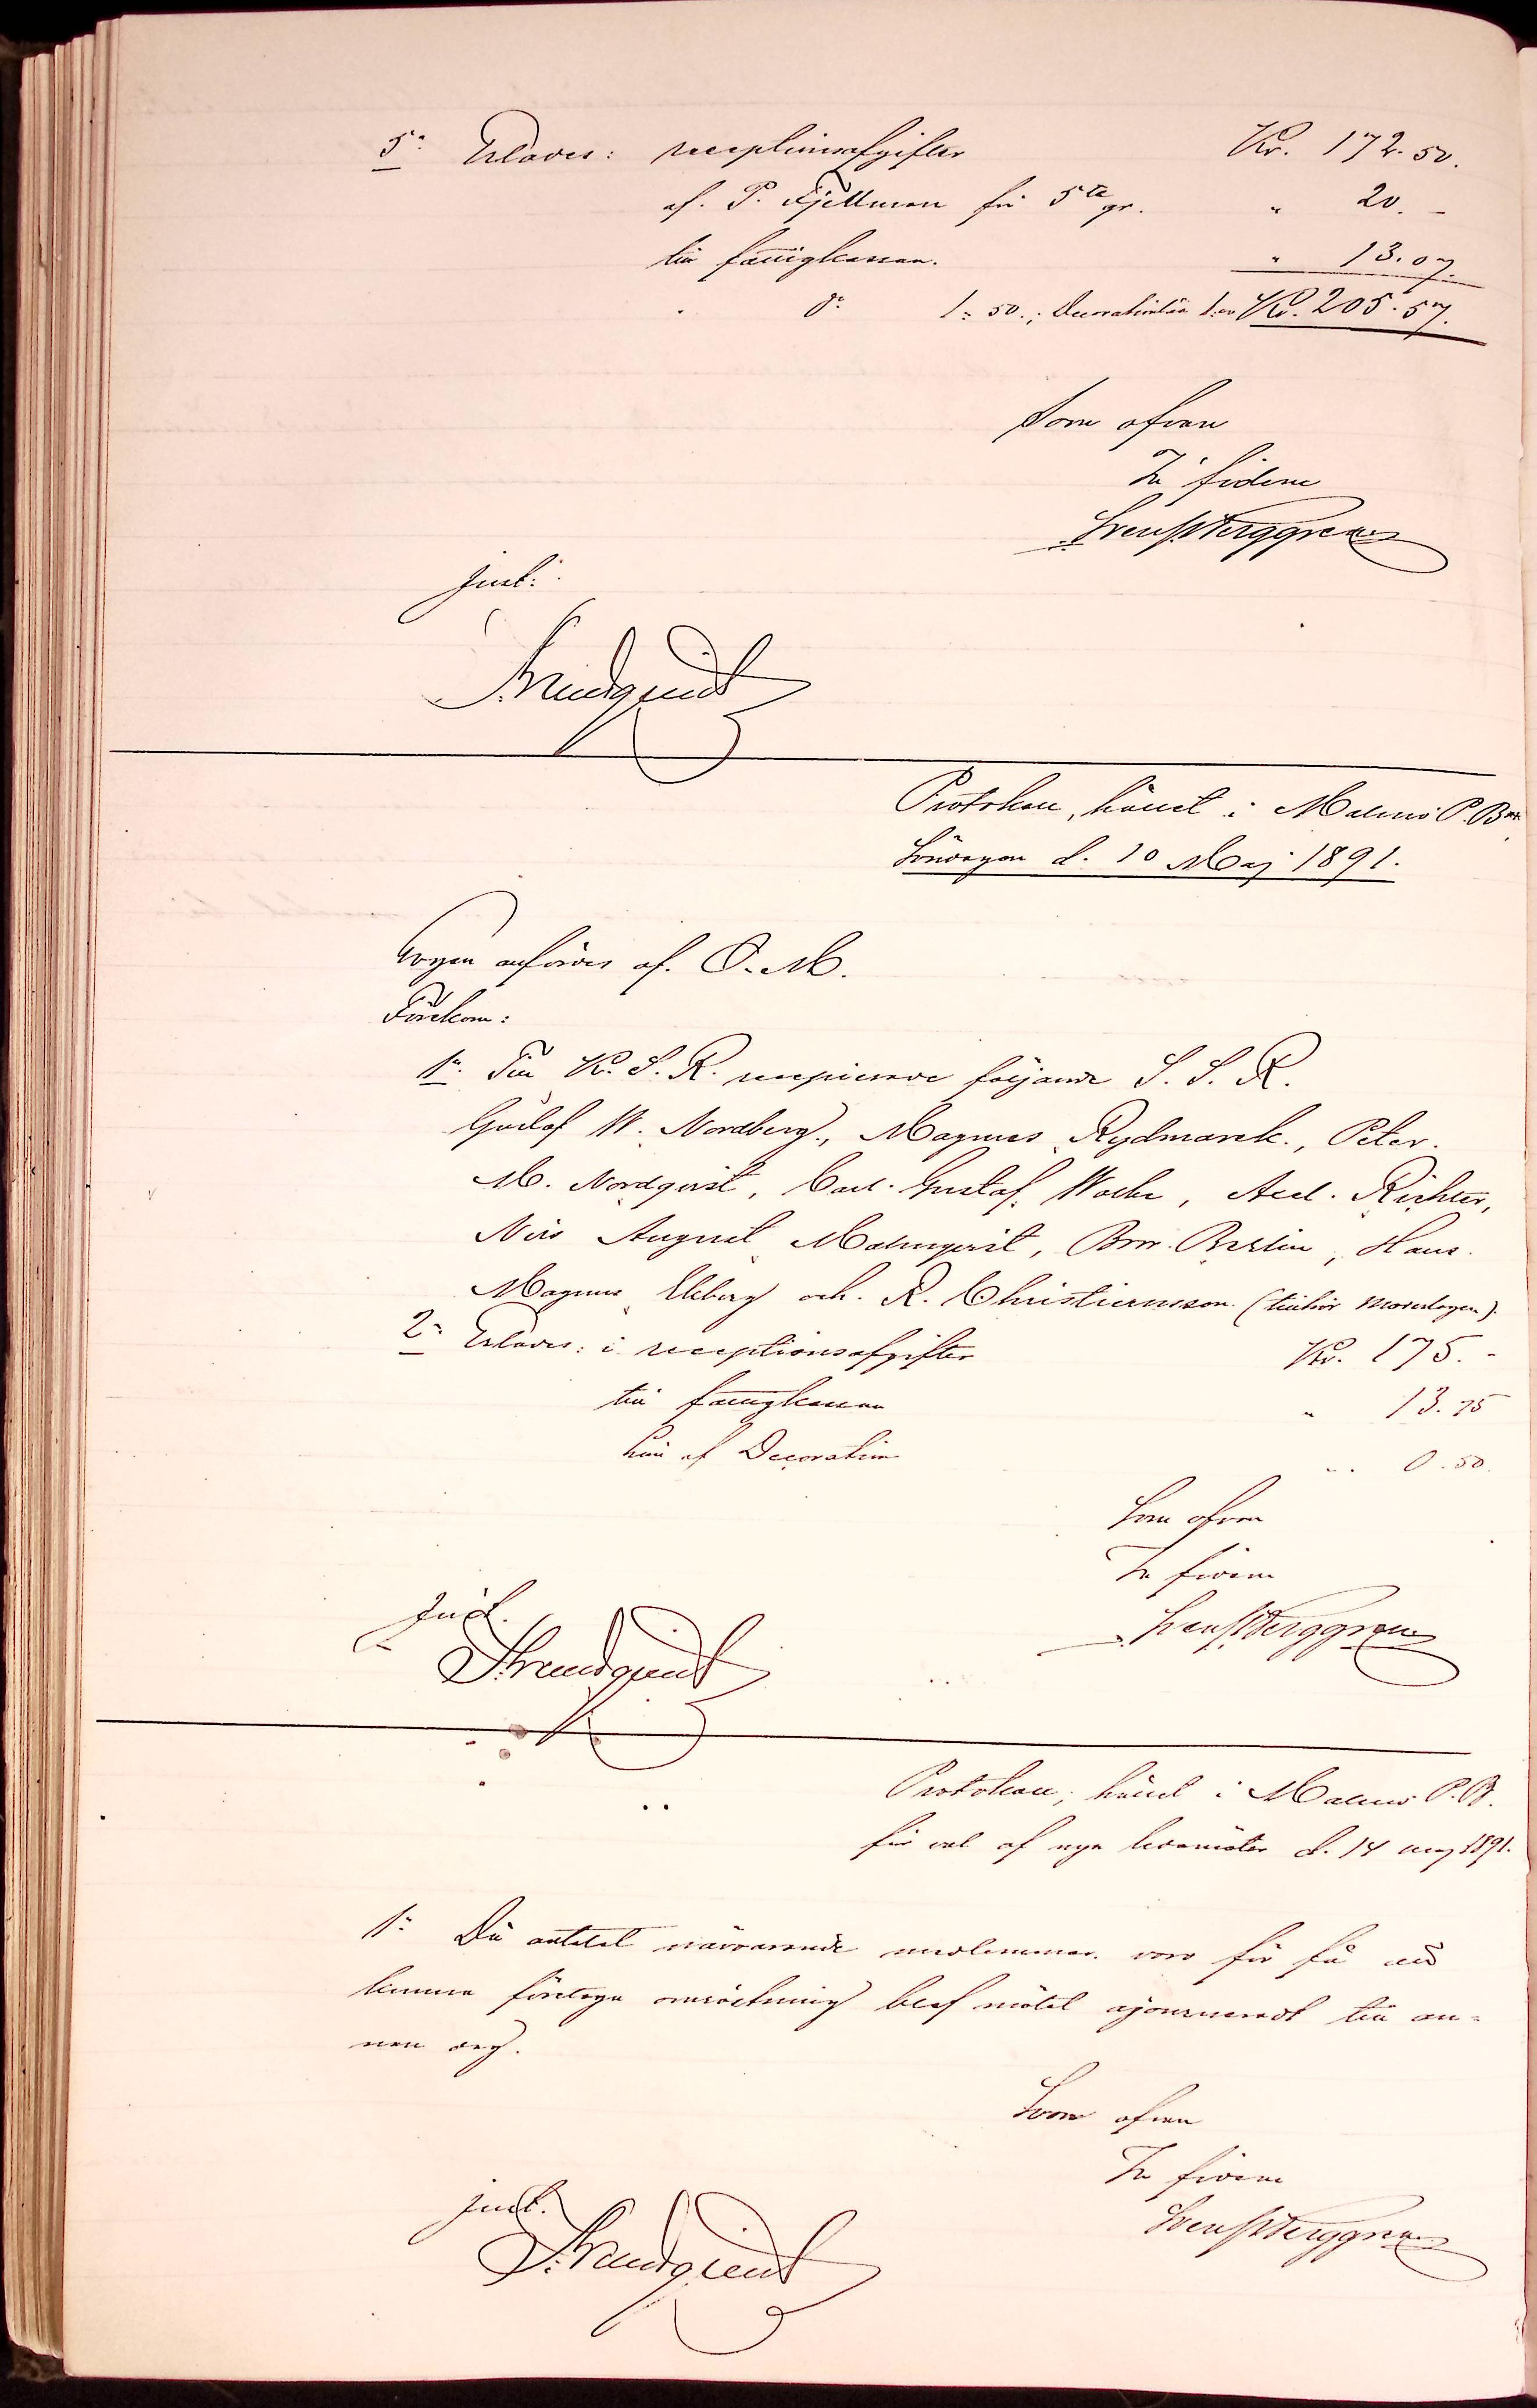 5:o Erlades: receptionsafgifter Kr. 172.50.
af P. Kjellman för 5te gr. " 20.-
till fattigkassan. " 13.07.
" d:o 1:50.; Decorationslån 1:00 Kr. 205.57.
Som ofvan
In fidem
Sven Berggren
Just:
Strandqvist
Protokoll, hållet i Malmö P. B.
Söndagen d. 10 Maj 1891.
Logen anfördes af O. M.
Förekom:
1:o Till K. S. R. recipierade följande S. S. R.
Gustaf W. Nordberg, Magnus Rydmarck, Peter
M. Nordqvist, Carl Gustaf, Axel Richter,
Nils August Malmqvist, Hans
Magnus Ekberg och R. Christiernsson. (tillhör Moderlogen).
2:o Erlades: i receptionsafgifter Kr. 175.-
till fattigkassan " 13.75
lån af Decoration " 0.50.
Som ofvan
In fidem
Sven Berggren
Just.
Strandqvist
Protokoll, hållet i Malmö P. B.
för val af nya ledamöter d. 14 maj 1891.
1:o Då antalet närvarande medlemmar voro för få att
kunna företaga omröstning blef mötet ajourneradt till an-
nan dag.
Som ofvan
In fidem
Sven Berggren
Just.
Strandqvist